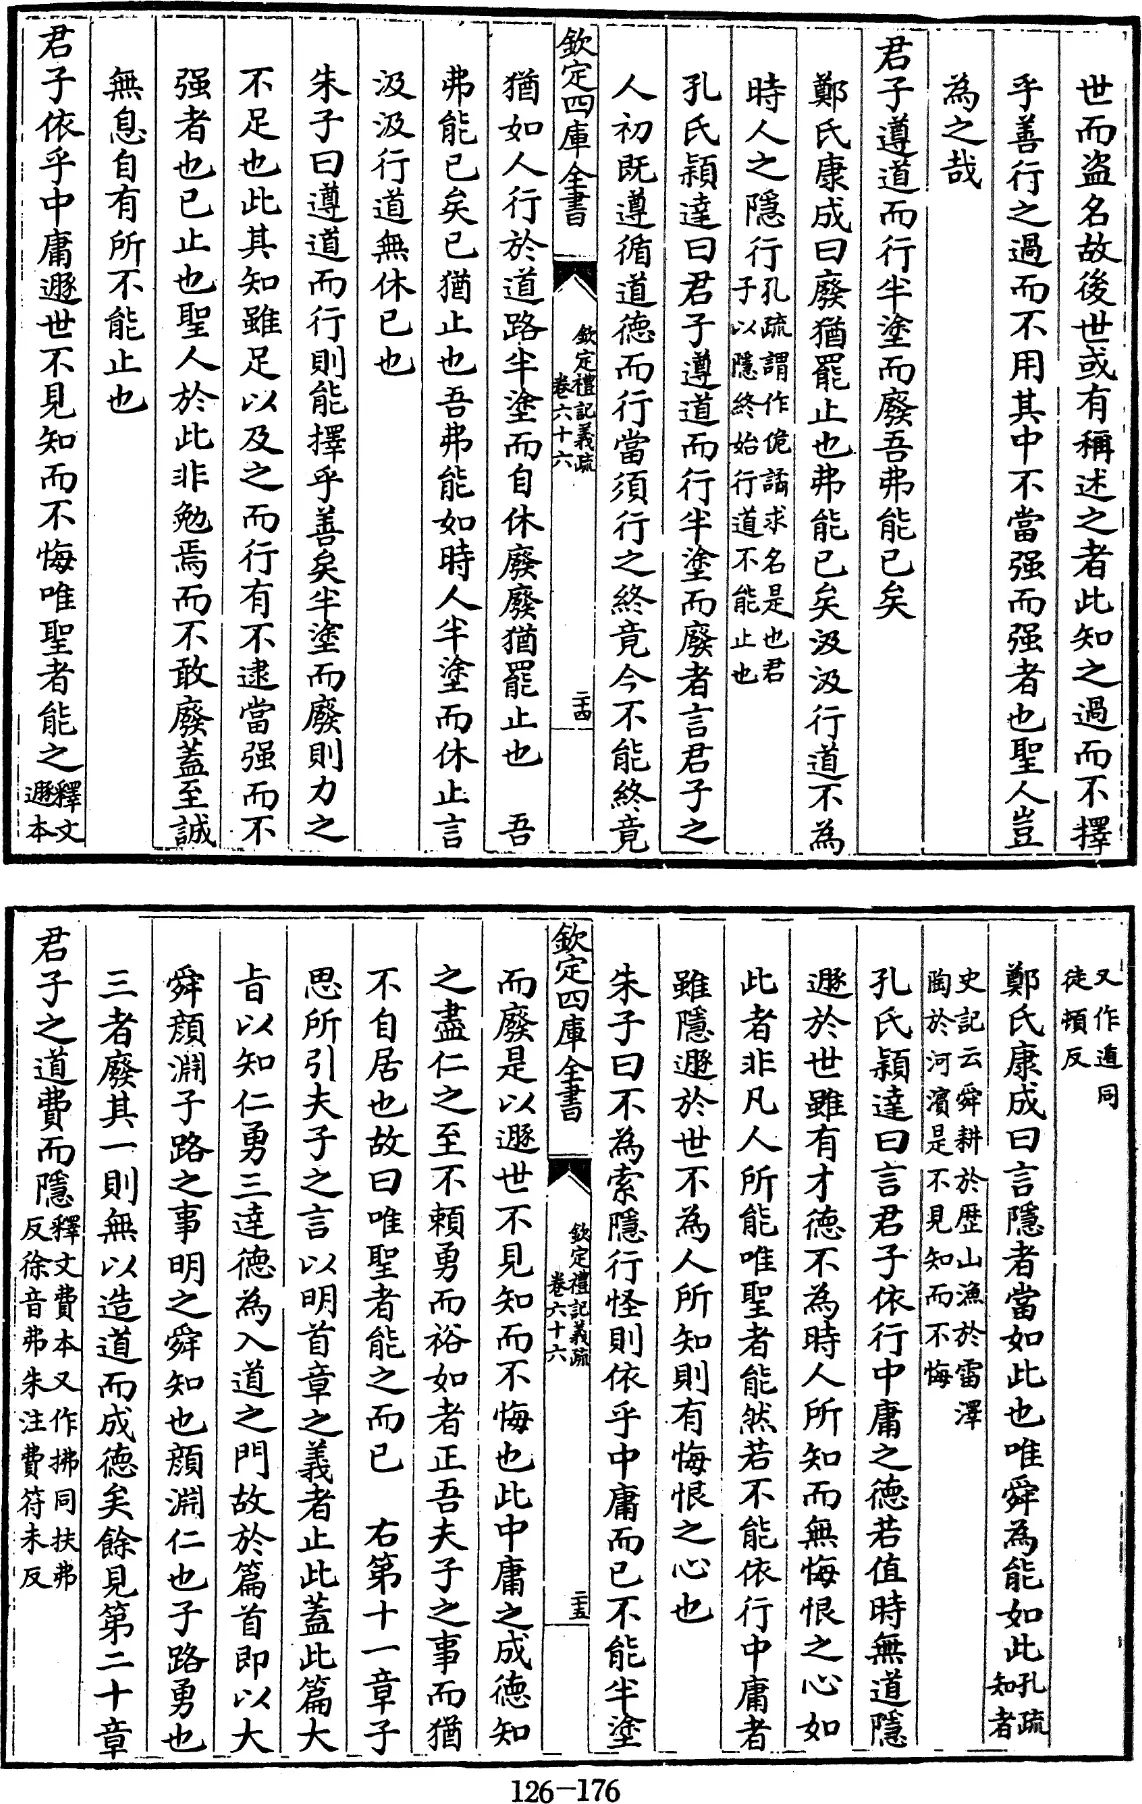 世而盜名故後世或有稱述之者此知之過而不擇
乎善行之過而不用其中不當强而强者也聖人豈
為之哉
君子遵道而行半塗而廢吾弗能已矣
鄭氏康成曰廢猶罷止也弗能已矣汲汲行道不為
時人之隱行孔疏謂作佹譎求名是也君
子以隱終始行道不能止也
孔氏穎達曰君子遵道而行半塗而廢者言君子之
人初既遵循道德而行當須行之終竟今不能終竟
欽定四庫全書
欽定禮記義疏
卷六十六
二十四
猶如人行於道路半塗而自休廢廢猶罷止也 吾
弗能已矣已猶止也吾弗能如時人半塗而休止言
汲汲行道無休已也
朱子曰遵道而行則能擇乎善矣半塗而廢則力之
不足也此其知雖足以及之而行有不逮當强而不
强者也已止也聖人於此非勉焉而不敢廢蓋至誠
無息自有所不能止也
君子依乎中庸遯世不見知而不悔唯聖者能之釋文
遯本
又作遁同
徒頓反
鄭氏康成曰言隱者當如此也唯舜為能如此孔疏
知者
史記云舜耕於歷山漁於雷澤
陶於河濱是不見知而不悔
孔氏穎達曰言君子依行中庸之德若值時無道隱
遯於世雖有才德不為時人所知而無悔恨之心如
此者非凡人所能唯聖者能然若不能依行中庸者
雖隱遯於世不為人所知則有悔恨之心也
朱子曰不為索隱行怪則依乎中庸而已不能半塗
欽定四庫全書
欽定禮記義疏
卷六十六
二十五
而廢是以遯世不見知而不悔也此中庸之成德知
之盡仁之至不賴勇而裕如者正吾夫子之事而猶
不自居也故曰唯聖者能之而已 右第十一章子
思所引夫子之言以明首章之義者止此蓋此篇大
旨以知仁勇三達德為入道之門故於篇首即以大
舜顏淵子路之事明之舜知也顏淵仁也子路勇也
三者廢其一則無以造道而成德矣餘見第二十章
君子之道費而隱釋文費本又作拂同扶弗
反徐音弗朱注費符未反
126-176